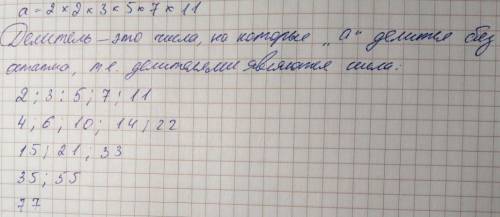 a = 2 × 2 × 3 × 5 × 7 × 11
Делитель – это числа, на которые „а" делится без
остатка, т.е. делителями являются числа:
2; 3; 5; 7; 11
4, 6; 10; 14; 22
15; 21; 33
35; 55
77